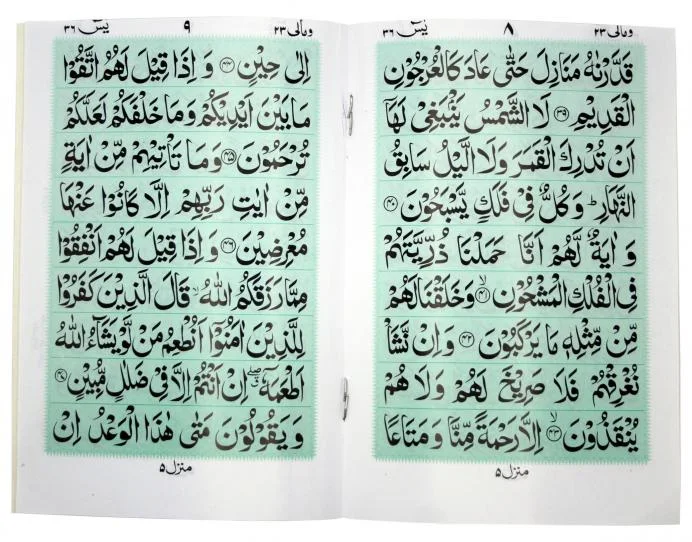 ومالی ۲۳ ۸ یٰسٓ ۳۶
قَدَّرْنٰهُ مَنَازِلَ حَتّٰى عَادَ كَالْعُرْجُوْنِ
الْقَدِيْمِ ﴿۳۹﴾ لَا الشَّمْسُ يَنْۢبَغِيْ لَهَاۤ
اَنْ تُدْرِكَ الْقَمَرَ وَلَا الَّيْلُ سَابِقُ
النَّهَارِ ؕ وَكُلٌّ فِيْ فَلَكٍ يَّسْبَحُوْنَ ﴿۴۰﴾
وَ اٰيَةٌ لَّهُمْ اَنَّا حَمَلْنَا ذُرِّيَّتَهُمْ
فِي الْفُلْكِ الْمَشْحُوْنِ ﴿۴۱﴾ۙ وَخَلَقْنَا لَهُمْ
مِّنْ مِّثْلِهٖ مَا يَرْكَبُوْنَ ﴿۴۲﴾ وَاِنْ نَّشَاْ
نُغْرِقْهُمْ فَلَا صَرِيْخَ لَهُمْ وَلَا هُمْ
يُنْقَذُوْنَ ﴿۴۳﴾ۙ اِلَّا رَحْمَةً مِّنَّا وَمَتَاعًا
منزل ۵
ومالی ۲۳ ۹ یٰسٓ ۳۶
اِلٰى حِيْنٍ ﴿۴۴﴾ وَ اِذَا قِيْلَ لَهُمُ اتَّقُوْا
مَا بَيْنَ اَيْدِيْكُمْ وَمَا خَلْفَكُمْ لَعَلَّكُمْ
تُرْحَمُوْنَ ﴿۴۵﴾ وَمَا تَاْتِيْهِمْ مِّنْ اٰيَةٍ
مِّنْ اٰيٰتِ رَبِّهِمْ اِلَّا كَانُوْا عَنْهَا
مُعْرِضِيْنَ ﴿۴۶﴾ وَ اِذَا قِيْلَ لَهُمْ اَنْفِقُوْا
مِمَّا رَزَقَكُمُ اللّٰهُ ۙ قَالَ الَّذِيْنَ كَفَرُوْا
لِلَّذِيْنَ اٰمَنُوْۤا اَنُطْعِمُ مَنْ لَّوْ يَشَآءُ اللّٰهُ
اَطْعَمَهٗۤ ۖ اِنْ اَنْتُمْ اِلَّا فِيْ ضَلٰلٍ مُّبِيْنٍ ﴿۴۷﴾
وَ يَقُوْلُوْنَ مَتٰى هٰذَا الْوَعْدُ اِنْ
منزل ۵